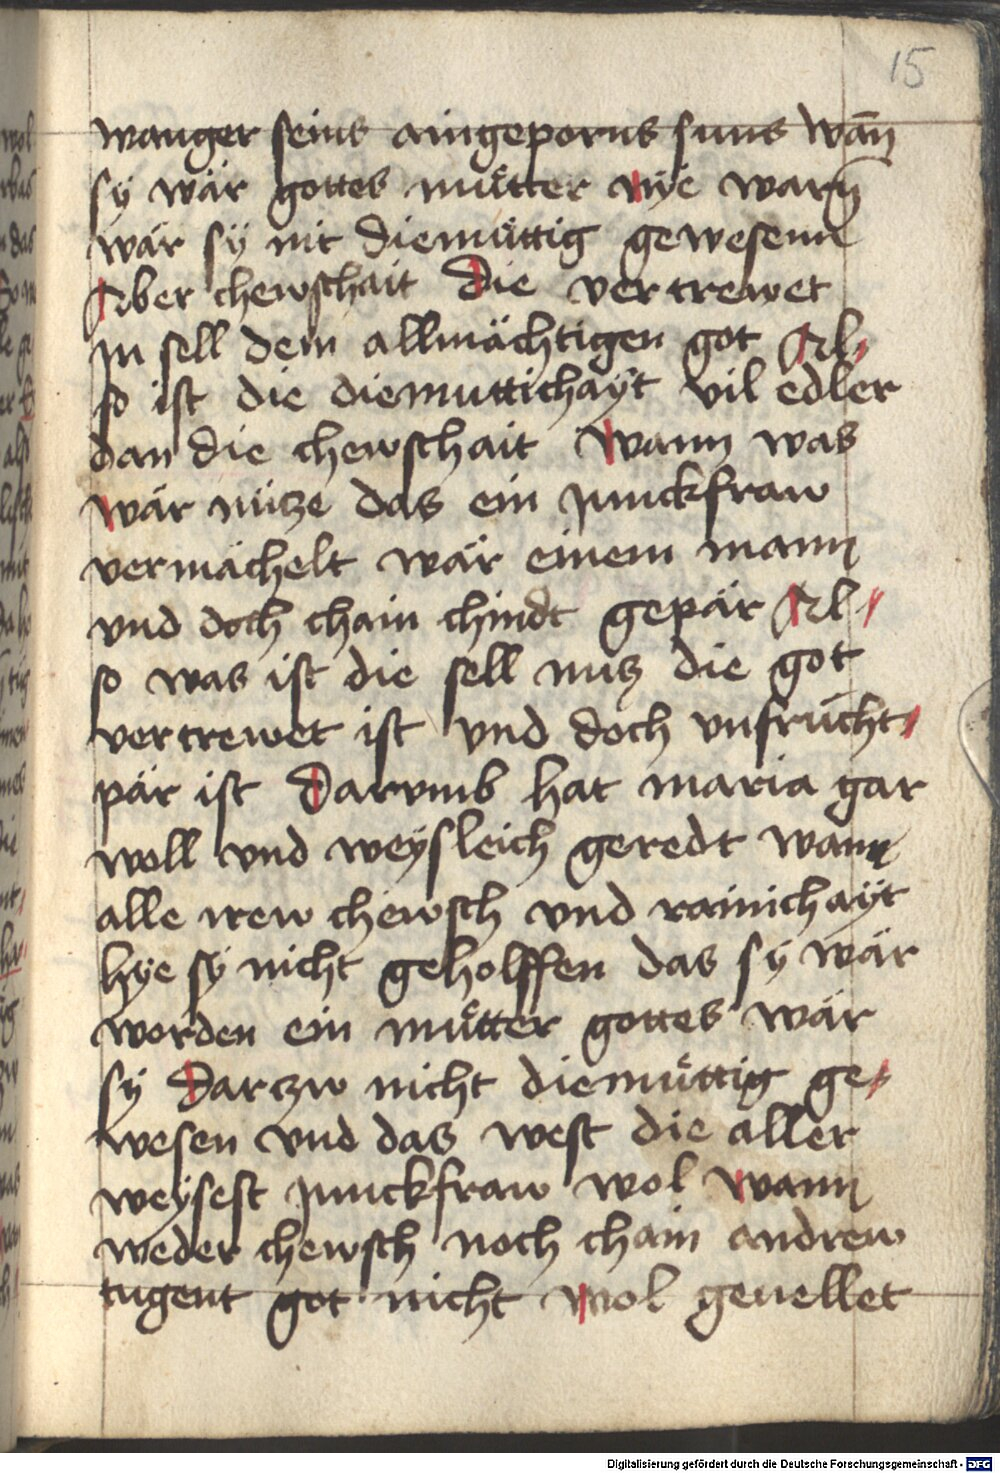 15
wanger seins aingeporns suns wan̄
sÿ wär gottes mu̎tter nÿe warn̄
wär sÿ nit diemu̎ttig gewesenn
Aber chewschait Die vertrewet
In sell dem allmächtigen got Al„
so ist die diemuttichaÿt vil edler
dan die chewschait Wann was
wär nütze das ein Junckfraw
vermächelt wär einem mann
vnd doch chain chindt gepär Al„
so was ist die sell nutz die got
vertrewet ist vnd doch vnfrücht„
pär ist Darvmb hat maria gar
woll vnd weÿsleich geredt wann
alle irew chewsch vnd rainichaÿt
hÿe sÿ nicht geholffen das sÿ wär
worden ein mu̎tter gottes wär
sÿ Darczw nicht diemu̎ttig ge„
wesen vnd das west die aller
weÿsest Junckfraw wol wann
weder chewsch noch chain andrew
tugent got nicht wol geuellet
Digitalisierung gefördert durch die Deutsche Forschungsgemeinschaft - DFG